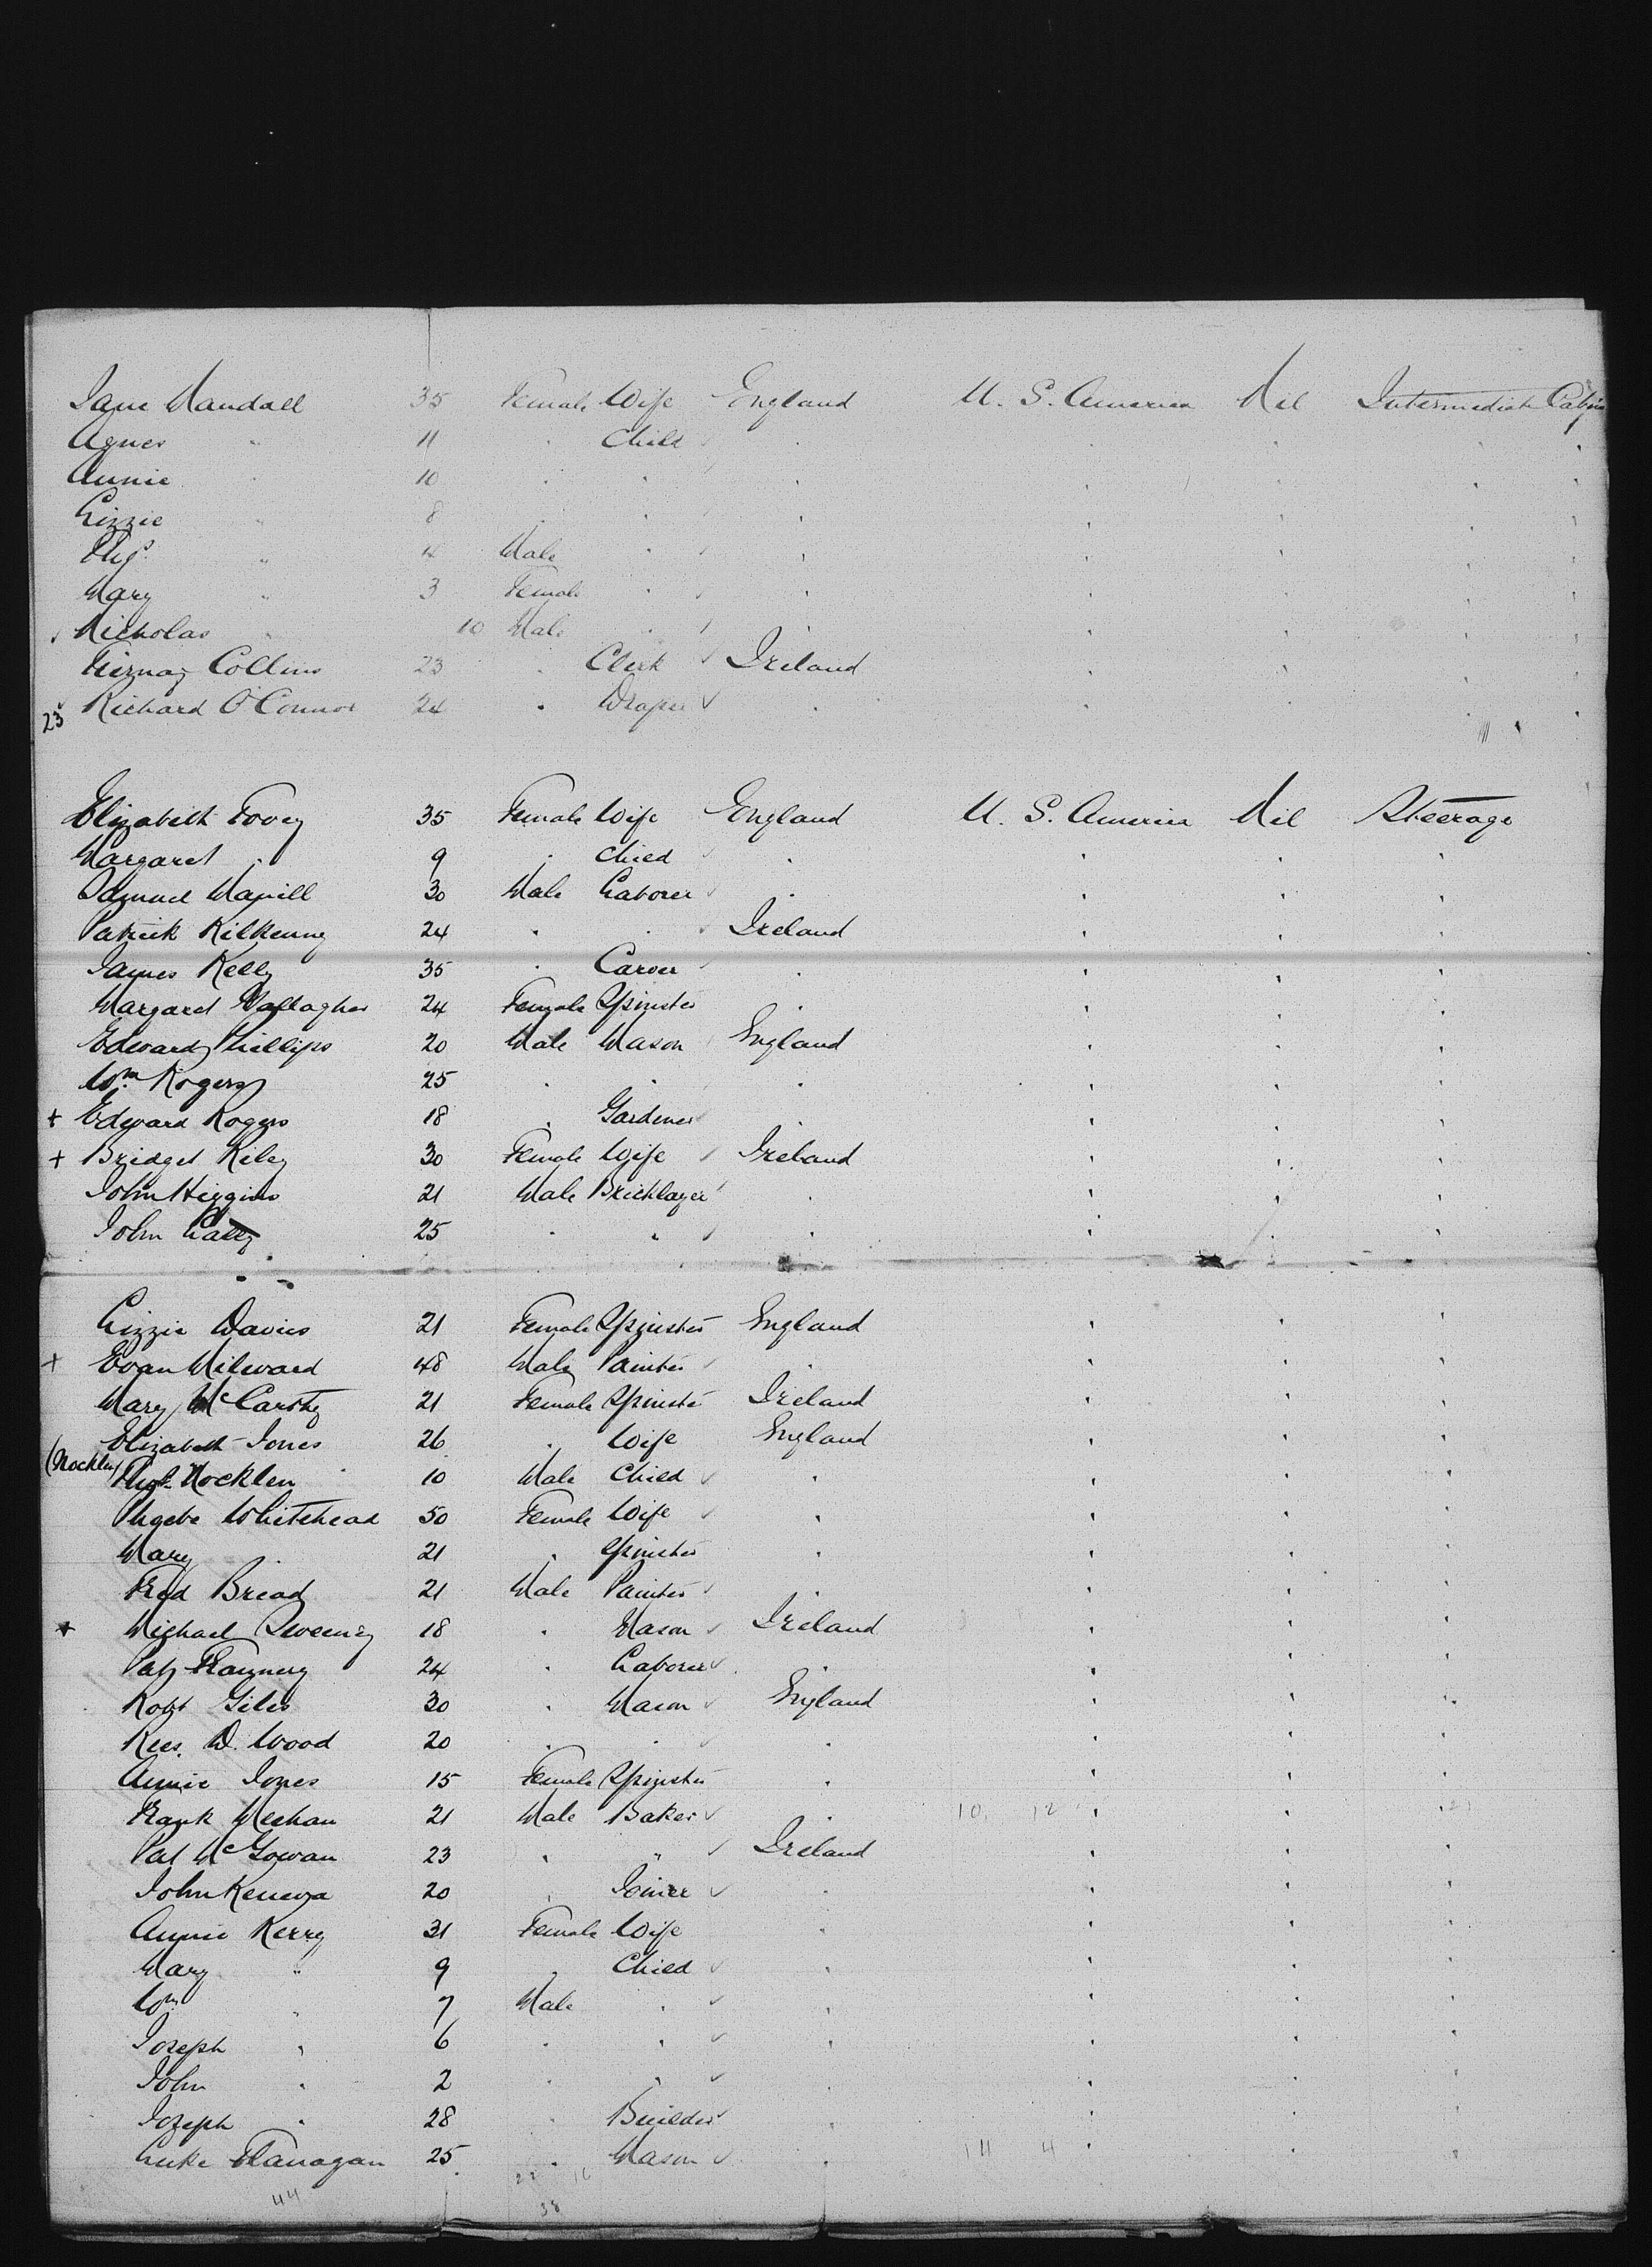 Jane Mandall 35 Female Wife England U. S. America Nil Intermediate Cabin
Agnes " 11 " Child " " " "
Annie " 10 " " " " " "
Lizzie " 8 " " " " " "
Thos. " 4 Male " " " " "
Mary " 3 Female " " " " "
Nicholas " 10 Male " " " " "
Collins 23 " Clerk Ireland " " "
23 Richard O'Connor 24 " Draper " " " "
Elizabeth Tovey 35 Female Wife England U. S. America Nil Steerage
Margaret " 9 " Child " " " "
Samuel 30 Male Laborer " " " "
Patrick Kilkenny 24 " " Ireland " " "
James Kelly 35 " Carver " " " "
Margaret Gallagher 24 Female Spinster " " " "
Edward Phillips 20 Male Mason England " " "
Wm. Rogers 25 " " " " " "
+ Edward Rogers 18 " Gardener " " " "
+ Bridget Riley 30 Female Wife Ireland " " "
John Higgins 21 Male Bricklayer " " " "
John Lally 25 " " " " " "
Lizzie Davies 21 Female Spinster England " " "
+ Evan Milward 48 Male Painter " " " "
Mary McCarthy 21 Female Spinster Ireland " " "
Elizabeth Jones 26 " Wife England " " "
(Nocklen) Thos. Nocklen 10 Male Child " " " "
Phoebe Whitehead 50 Female Wife " " " "
Mary " 21 " Spinster " " " "
Fred Bread 21 Male Painter " " " "
+ Michael Sweeney 18 " Mason Ireland " " "
Pat Flannery 24 " Laborer " " " "
Robt Giles 30 " Mason England " " "
Rees. D. Wood 20 " " " " " "
Annie Jones 15 Female Spinster " " " "
Frank Meehan 21 Male Baker " 10 12 " " "
Pat McGowan 23 " " Ireland " " "
John 20 " Joiner " " " "
Annie Kerry 31 Female Wife " " " "
Mary " 9 " Child " " " "
Wm " 7 Male " " " " "
Joseph " 6 " " " " " "
John " 2 " " " " " "
Joseph " 28 " Builder " " " "
Luke Flanagan 25 " Mason " 11 4 " " "
44 22 16
38